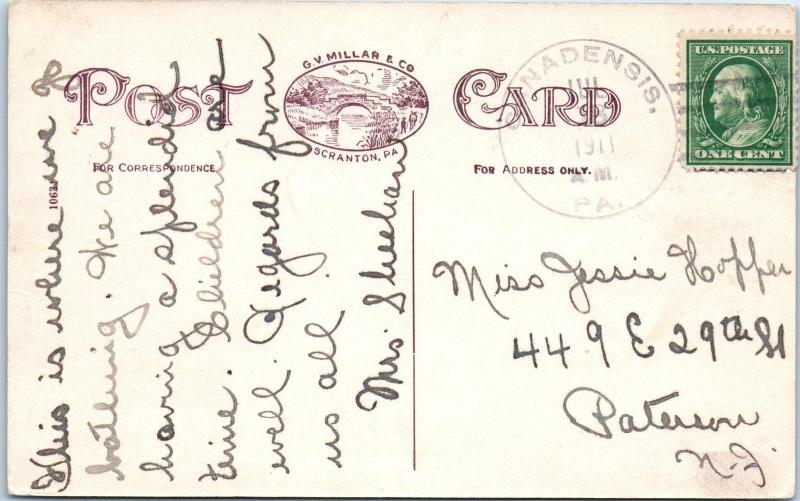 POST CARD
G.V. MILLAR & CO
SCRANTON, PA
FOR CORRESPONDENCE
FOR ADDRESS ONLY.
CANADENSIS,
1911
A.M.
PA.
U.S. POSTAGE
ONE CENT
This is where we go
bathing. We are
having a splendid
time. Children are
well. Regards from
us all
Mrs. Sheehan
Miss Jessie Hopper
449 E 29th St
Paterson
N.J.